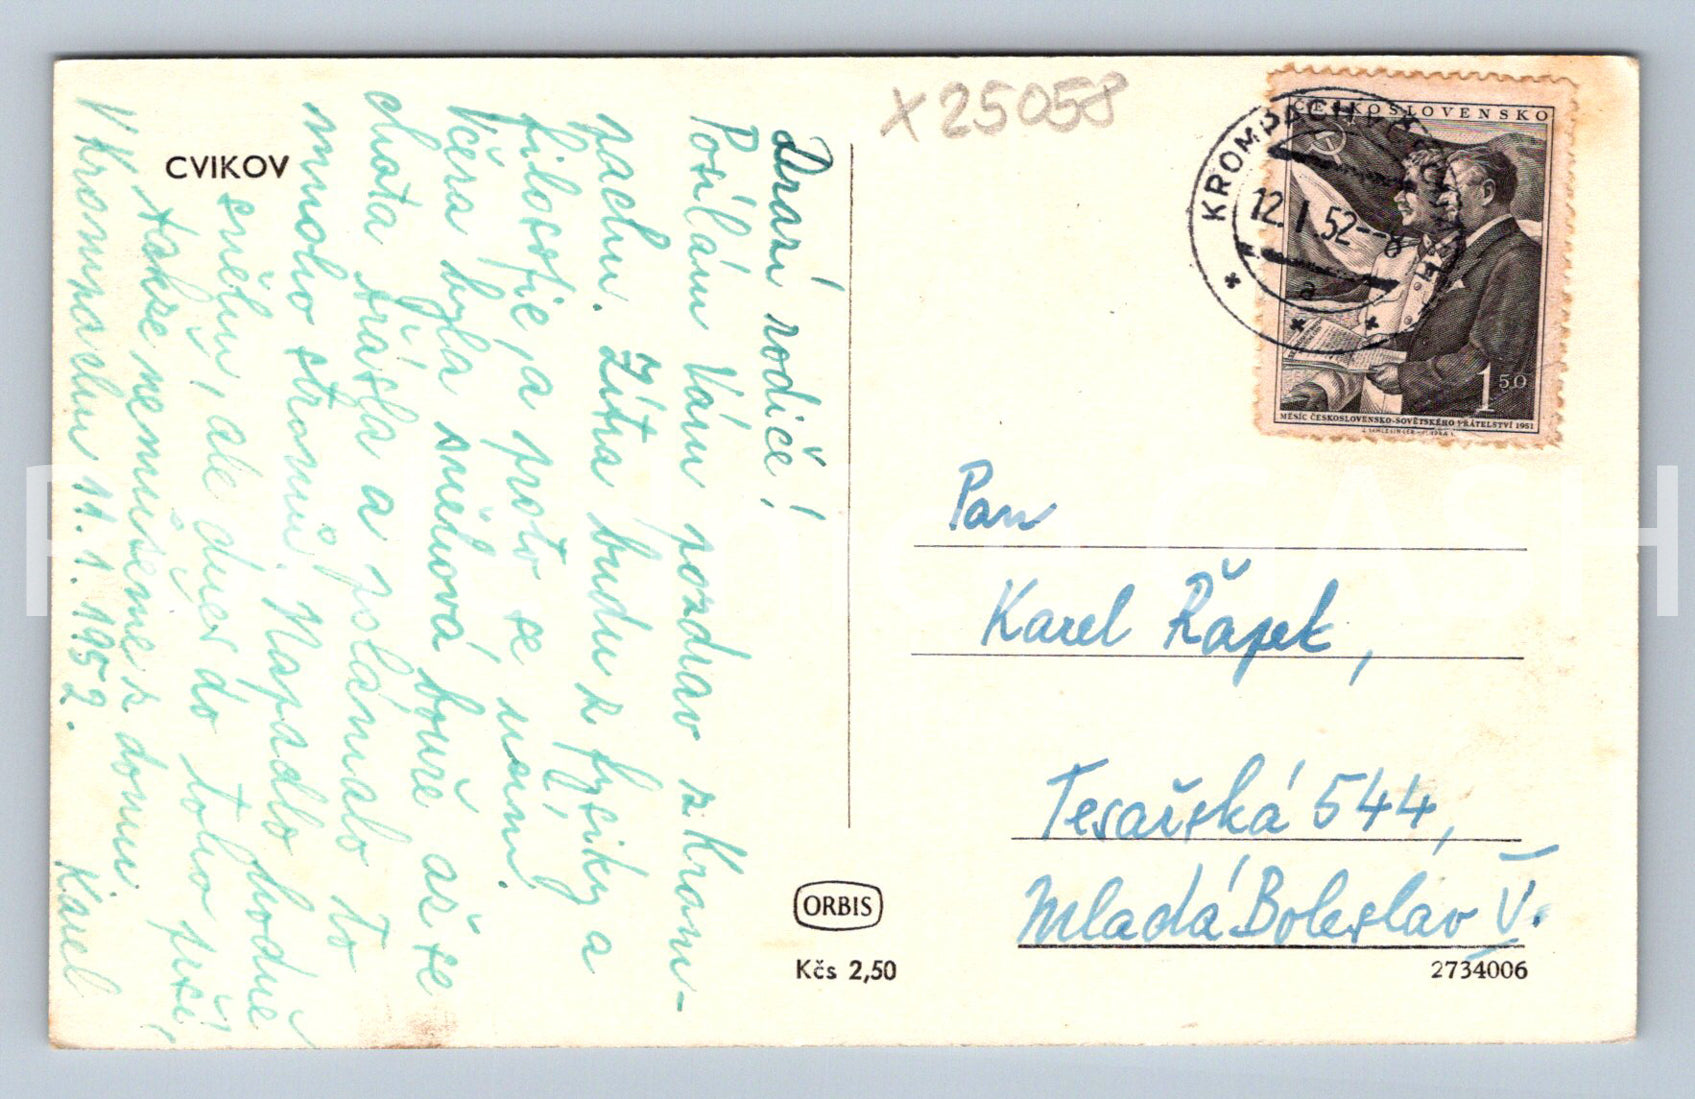 X25058
CVIKOV
Drazí rodiče!
Posílám Vám pozdrav z Krom-
pachu. Zítra budu z fysiky a
filosofie, a proto se učím.
Včera byla sněhová bouře až se
chata třásla a polámalo to
mnoho stromů. Napadlo hodně
sněhu, ale dnes do toho prší,
takže nemusíme z domu
V Krompachu 11.1.1952. Karel
ČESKOSLOVENSKO
KROMPACH
12.I.52--8
a
1 50
MĚSÍC ČESKOSLOVENSKO-SOVĚTSKÉHO PŘÁTELSTVÍ 1951
Pan
Karel Řápek,
Tesařská 544,
Mladá Boleslav V.
ORBIS
Kčs 2,50
2734006